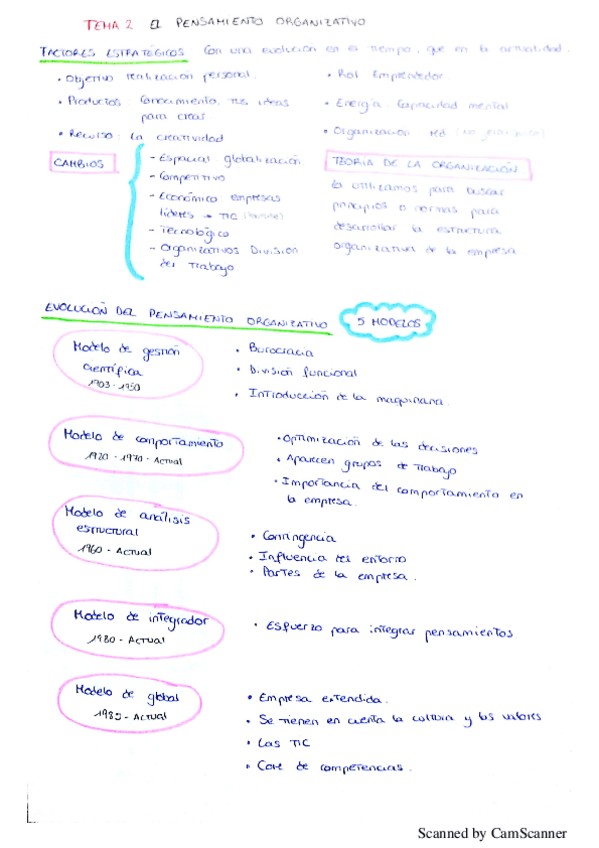 TEMA 2 EL PENSAMIENTO ORGANIZATIVO
FACTORES ESTRATÉGICOS Con una evolución en el tiempo, que en la actualidad.
• Objetivo realización personal.
• Productos: Conocimiento, ideas
para crear
• Recurso: la creatividad
• Rol Emprendedor.
• Energía: Capacidad mental
• Organización red
CAMBIOS
- Espacial globalización
- Competitivo
- Económico empresas
líderes → TIC
- Tecnológico
- Organizativos División
del Trabajo
TEORIA DE LA ORGANIZACIÓN
la utilizamos para buscar
principios o normas para
desarrollar la estructura
organizativa de la empresa
EVOLUCIÓN DEL PENSAMIENTO ORGANIZATIVO 5 MODELOS
Modelo de gestión
científica
1903 - 1950
• Burocracia
• División funcional
• Introducción de la maquinaria.
Modelo de comportamiento
1920 - 1970 - Actual
• Optimización de las decisiones
• Aparecen grupos de trabajo
• Importancia del comportamiento en
la empresa.
Modelo de análisis
estructural
1960 - Actual
• Contingencia
• Influencia del entorno
• Partes de la empresa.
Modelo de integrador
1980 - Actual
• Esfuerzo para integrar pensamientos
Modelo de global
1985 - Actual
• Empresa extendida.
• Se tienen en cuenta la cultura y los valores
• Las TIC
• Core de competencias.
Scanned by CamScanner